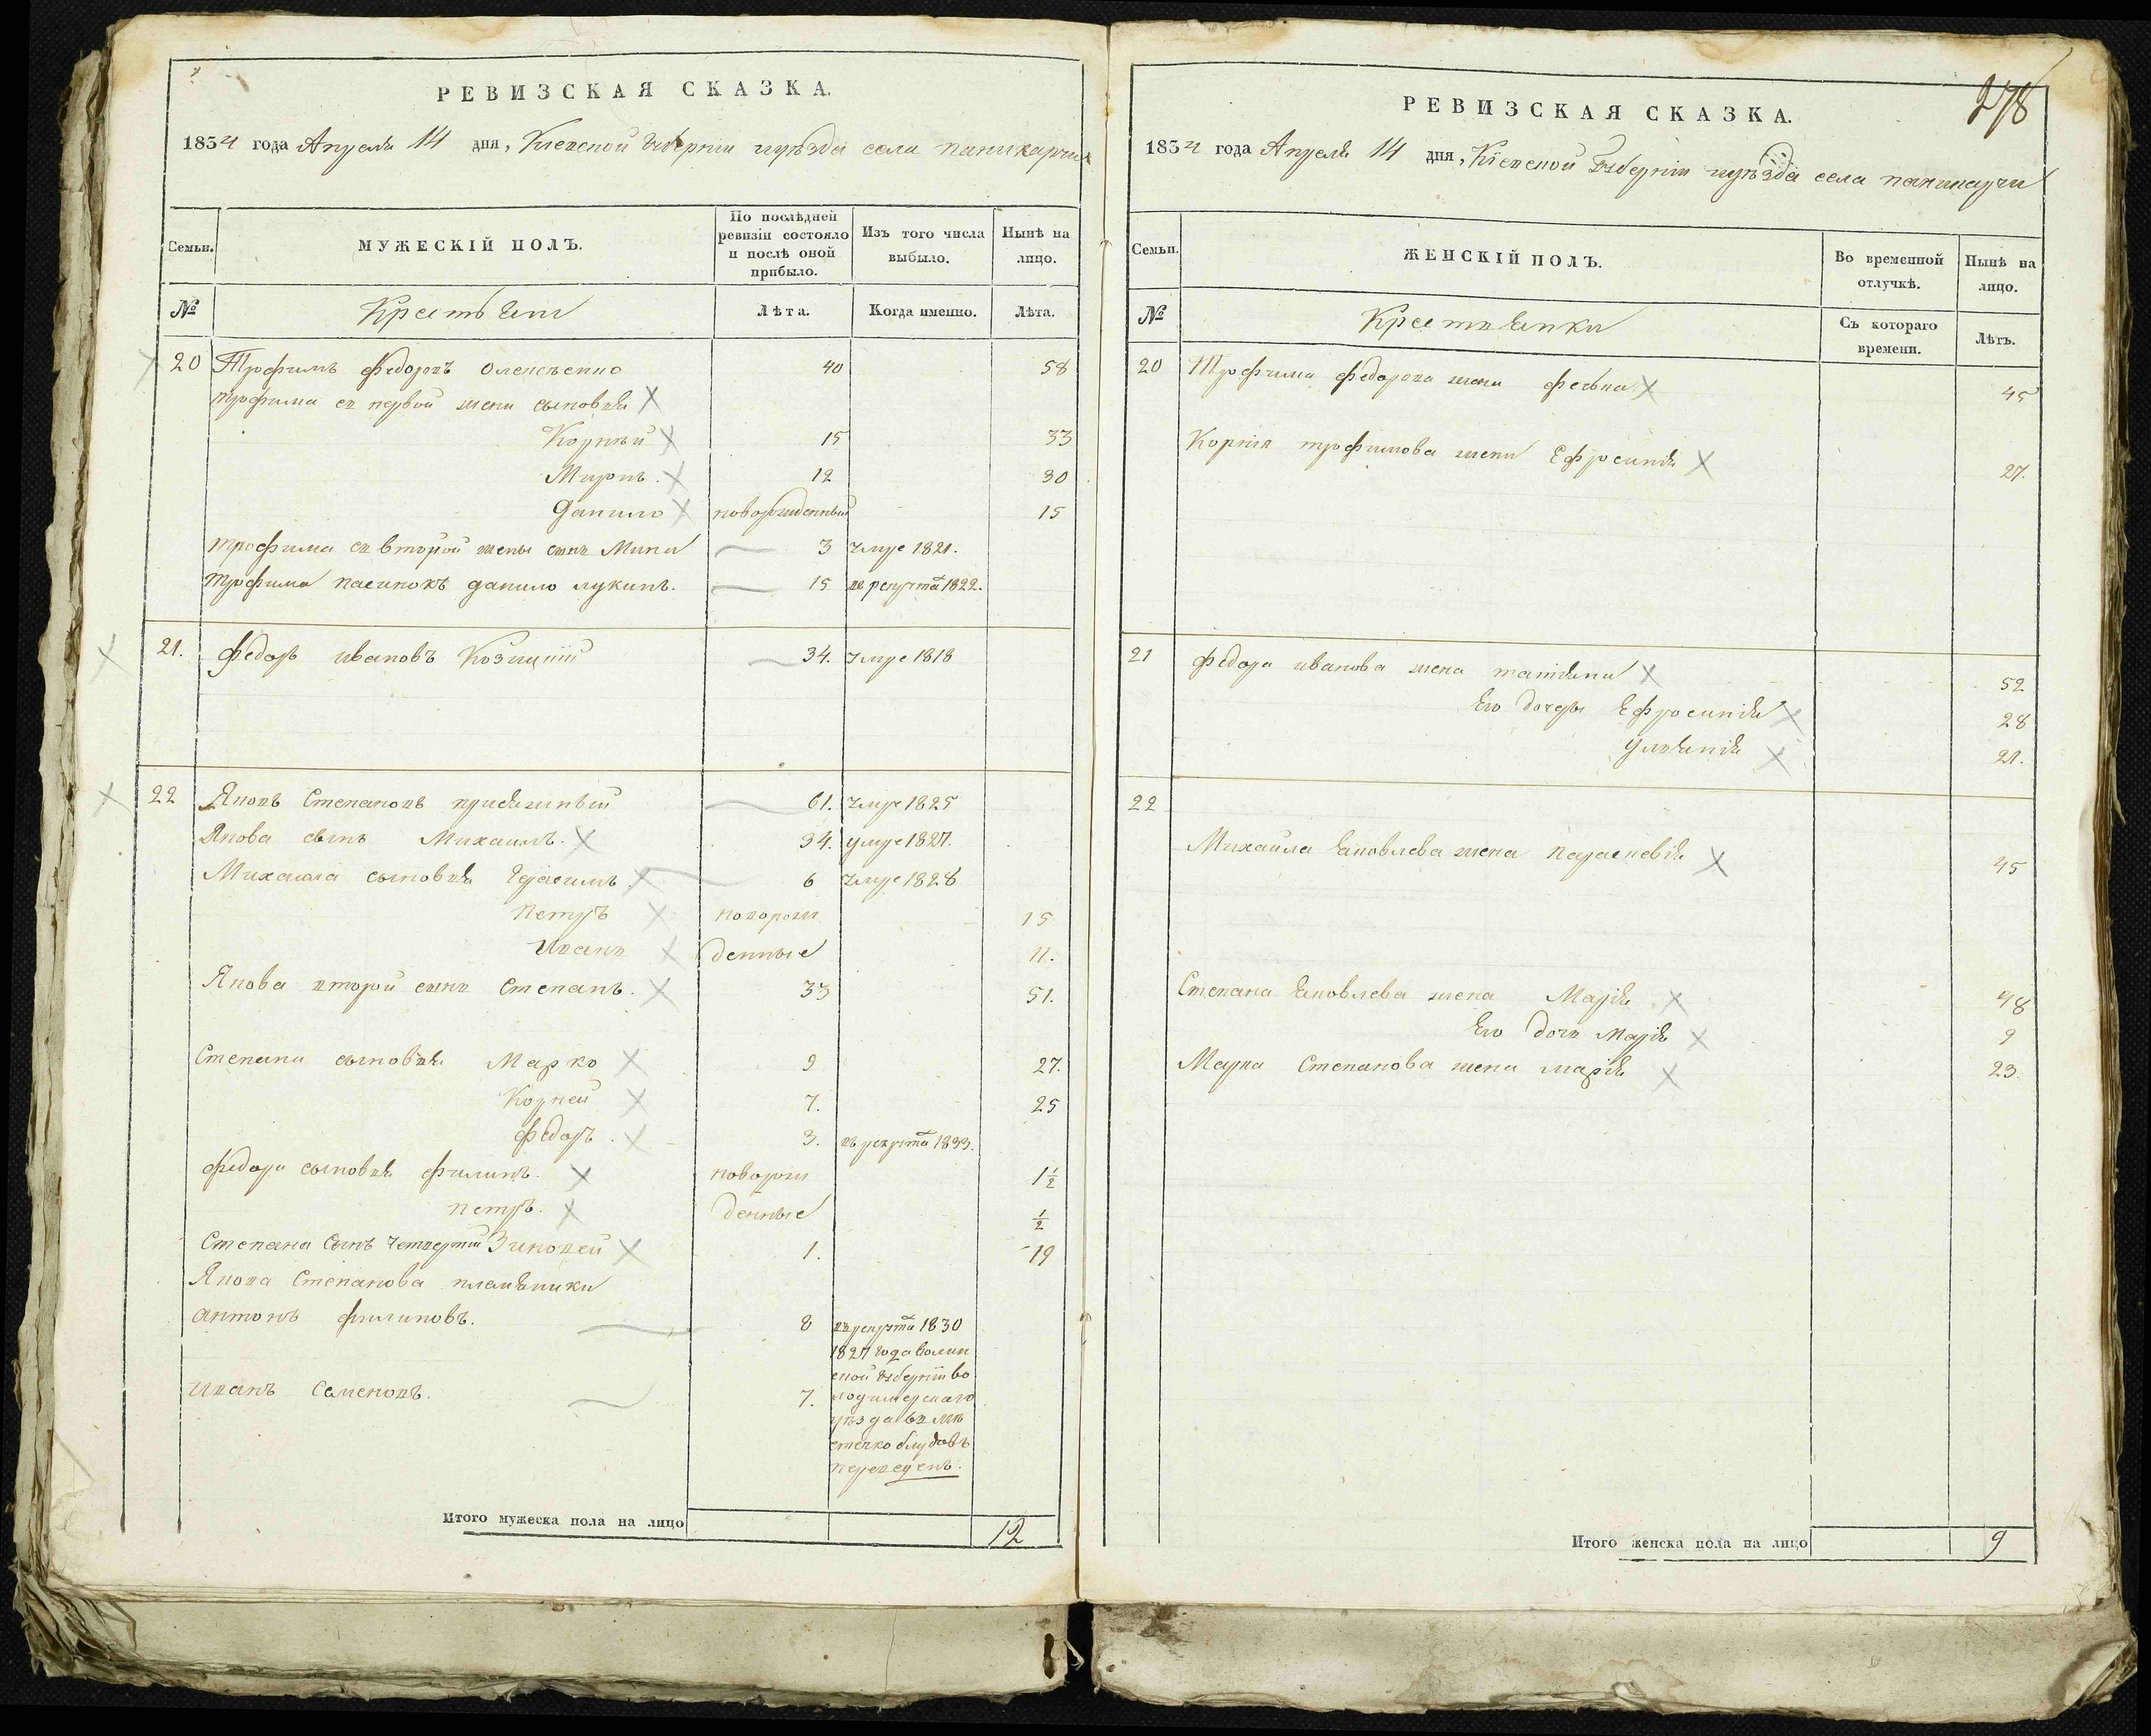 РЕВИЗСКАЯ СКАЗКА.
1834 года Апреля 14 дня, Киевской Губернии и уѣзда села паникарчи
Семьи.
МУЖЕСКІЙ ПОЛЪ.
По послѣдней ревизіи состояло и послѣ оной прибыло.
Изъ того числа выбыло.
Нынѣ на лицо.
№
Крестьяни
Лѣта.
Когда именно.
Лѣта.
20 Трофимъ федоровъ 40 58
трофима съ первой жени сыновья
Корнѣй 15 33
Миронъ. 12 30
Данило новорожденный 15
трофима съ второй жены сынъ Мина 3 умре 1821.
трофима пасинокъ данило лукинъ. 15 въ рекрута 1822.
21. федоръ ивановъ 34. умре 1818
22 Яковъ Степановъ 61. умре 1825
Якова сынъ Михаилъ. 34. умре 1827.
Михаила сыновья Герасимъ. 6 умре 1828
петръ новорож 15
Иванъ денные 11.
Якова второй сынъ Степанъ. 33 51.
Степана сыновья Марко 9 27.
Корней 7. 25
федоръ. 3. въ рекрута 1833.
федора сыновья филипъ. новорож 1 1/2
петръ. денные 1/2
Степана Сынъ четвертій Зиновей 1. 19
Якова Степанова племѣники
антонъ филиповъ. 8 въ рекрута 1830
иванъ Семеновъ. 7. 1827 года волин
ской губерніи во
лодимерскаго
уѣзда въ мѣ
стечко
переведенъ.
Итого мужеска пола на лицо 12
278
РЕВИЗСКАЯ СКАЗКА.
1834 года Апреля 14 дня, Кіевской Губерніи и уѣзда села паникарчи
Семьи.
ЖЕНСКІЙ ПОЛЪ.
Во временной отлучкѣ.
Нынѣ на лицо.
№
Крестьянки
Съ котораго времени.
Лѣтъ.
20 Трофима федорова жена 45
Корнія трофимова жена Ефросинія 27.
21 федора иванова жена татіяна 52
Его дочеры Ефросинія 28
Улиянія 21.
22
Михайла Яковлева жена параскевія 45
Степана Яковлева жена Марія 48
Его дочъ Марія 9
Марка Степанова жена марія 23
Итого женска пола на лицо 9